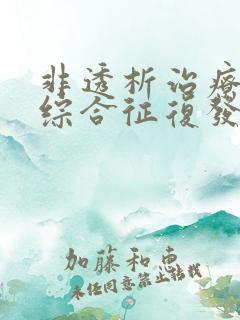 非透析治療
綜合征復發
加藤和惠
未任同意禁止转载